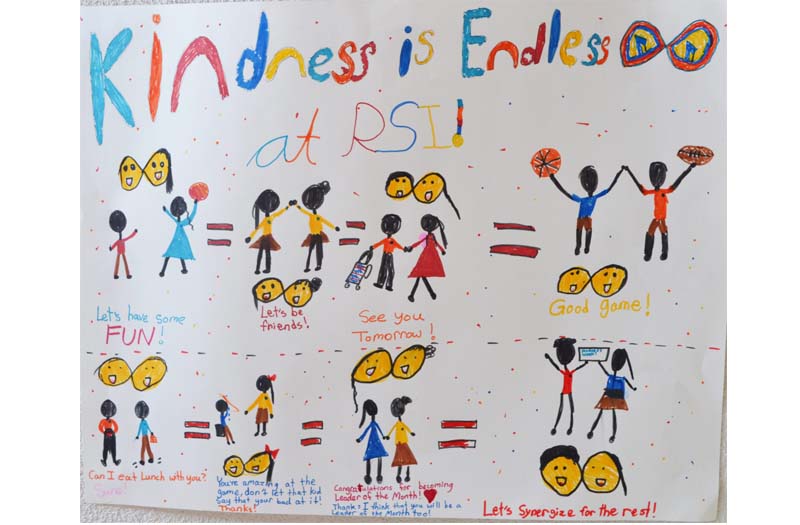 Kindness is Endless
at RSI!
Let's have some
FUN!
Let's be
friends!
See you
Tomorrow!
Good game!
Can I eat Lunch with you?
Sure!
You're amazing at the
game, don't let that kid
Say that your bad at it!
Thanks!
Congratulations for becoming
Leader of the Month!
Thanks! I think that you will be a
Leader of the Month too!
Let's Synergize for the rest!